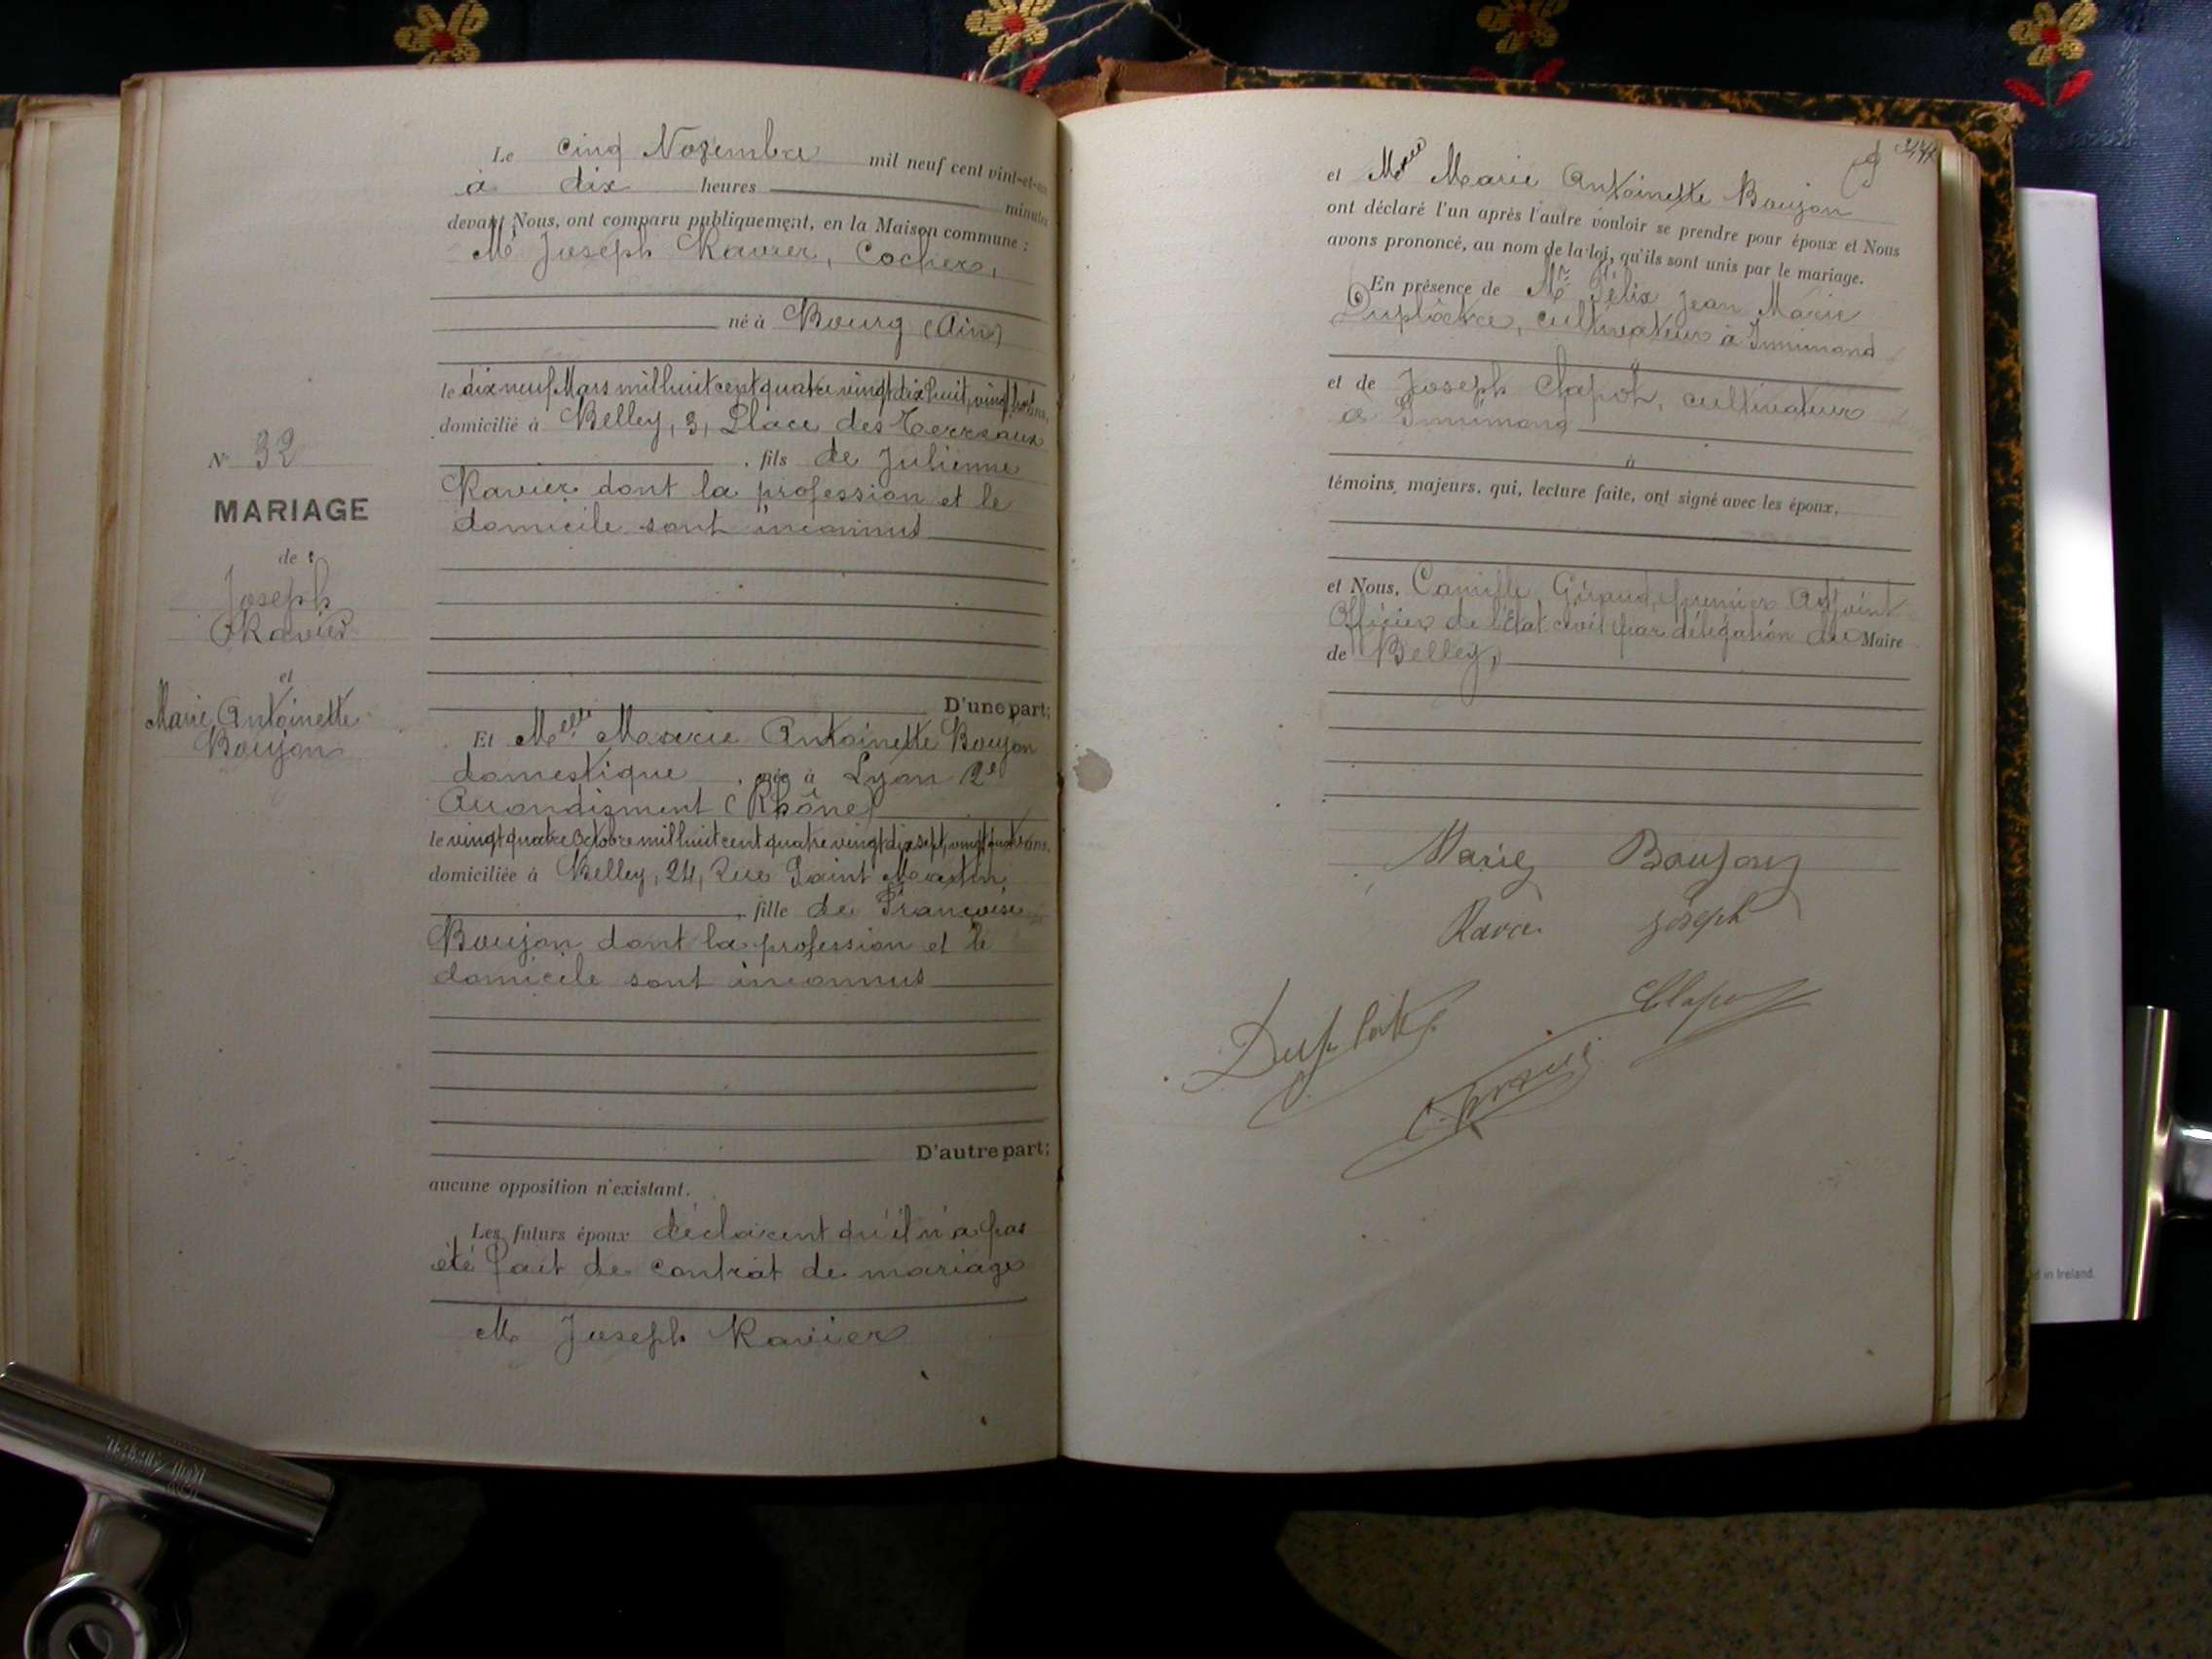 Le cinq Novembre mil neuf cent vint-et-un
à dix heures minutes
devant Nous, ont comparu publiquement, en la Maison commune :
Mr Joseph Ravier, Cocher,
né à Bourg (Ain)
le dix neuf Mars mil huit cent quatre vingt dix huit, vingt trois ans,
domicilié à Belley, 3, Place des Terreaux
, fils de Julienne
Ravier dont la profession et le
domicile sont inconnus
N° 32
MARIAGE
de :
Joseph
Ravier
et
Marie Antoinette
Boujon
D'une part;
Et Melle Marie Antoinette Boujon
domestique , née à Lyon 2e
Arrondisment (Rhône)
le vingt quatre Octobre mil huit cent quatre vingt dix sept, vingt quatre ans,
domiciliée à Belley, 24, Rue Saint Martin,
, fille de Françoise
Boujon dont la profession et le
domicile sont inconnus
D'autre part;
aucune opposition n'existant.
Les futurs époux déclarent qu'il n'a pas
été fait de contrat de mariage
M Joseph Ravier
et Melle Marie Antoinette Boujon
ont déclaré l'un après l'autre vouloir se prendre pour époux et Nous
avons prononcé, au nom de la loi, qu'ils sont unis par le mariage.
En présence de Mr Félix Jean Marie
Duplâtre, cultivateur à Innimond
à
et de Joseph Chapot, cultivateur
à Innimond
à
témoins, majeurs, qui, lecture faite, ont signé avec les époux,
et Nous, Camille Giraud, premier Adjoint
Officier de l'État civil par délégation du Maire
de Belley,
Marie Boujon
Ravier Joseph
in Ireland.